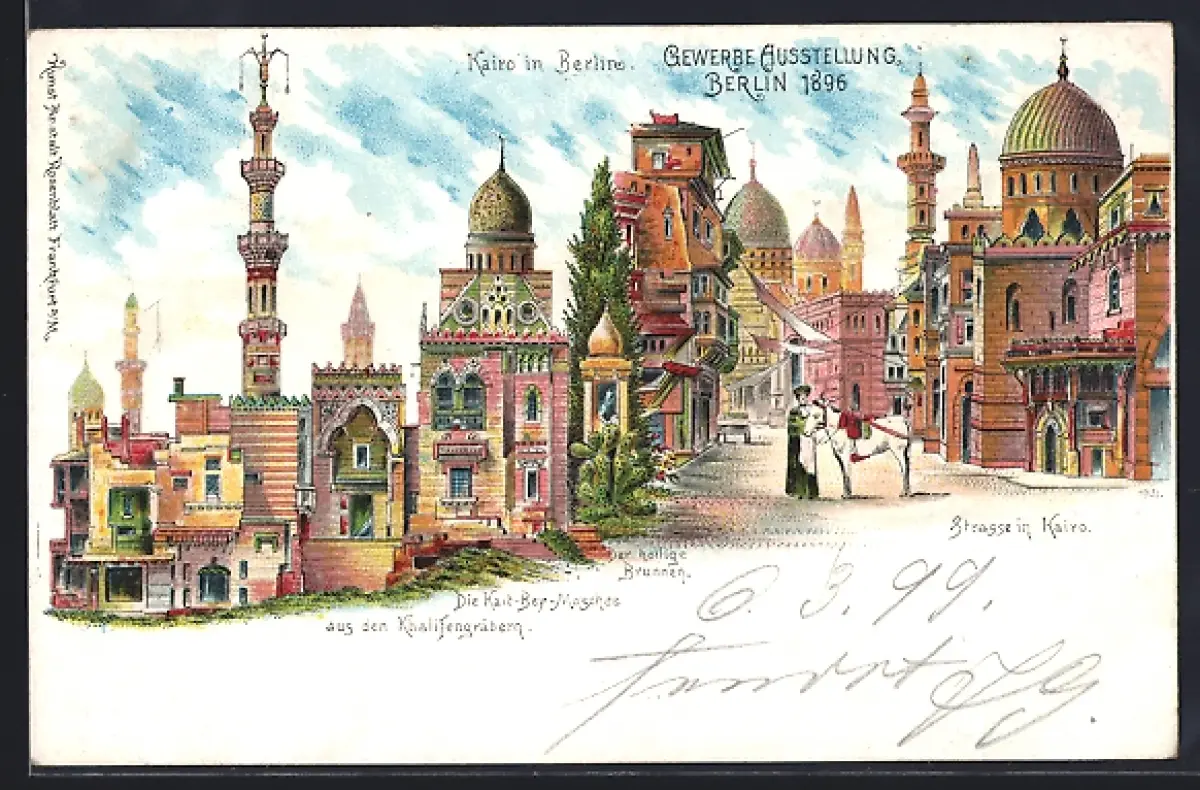 Kairo in Berlin.
GEWERBE AUSSTELLUNG,
BERLIN 1896
Kunst Anstalt Rosenblatt Frankfurt a/M.
Strasse in Kairo.
Der heilige
Brunnen.
Die Kait-Bey-Moschee
aus den Khalifengräbern.
6. 3. 99.